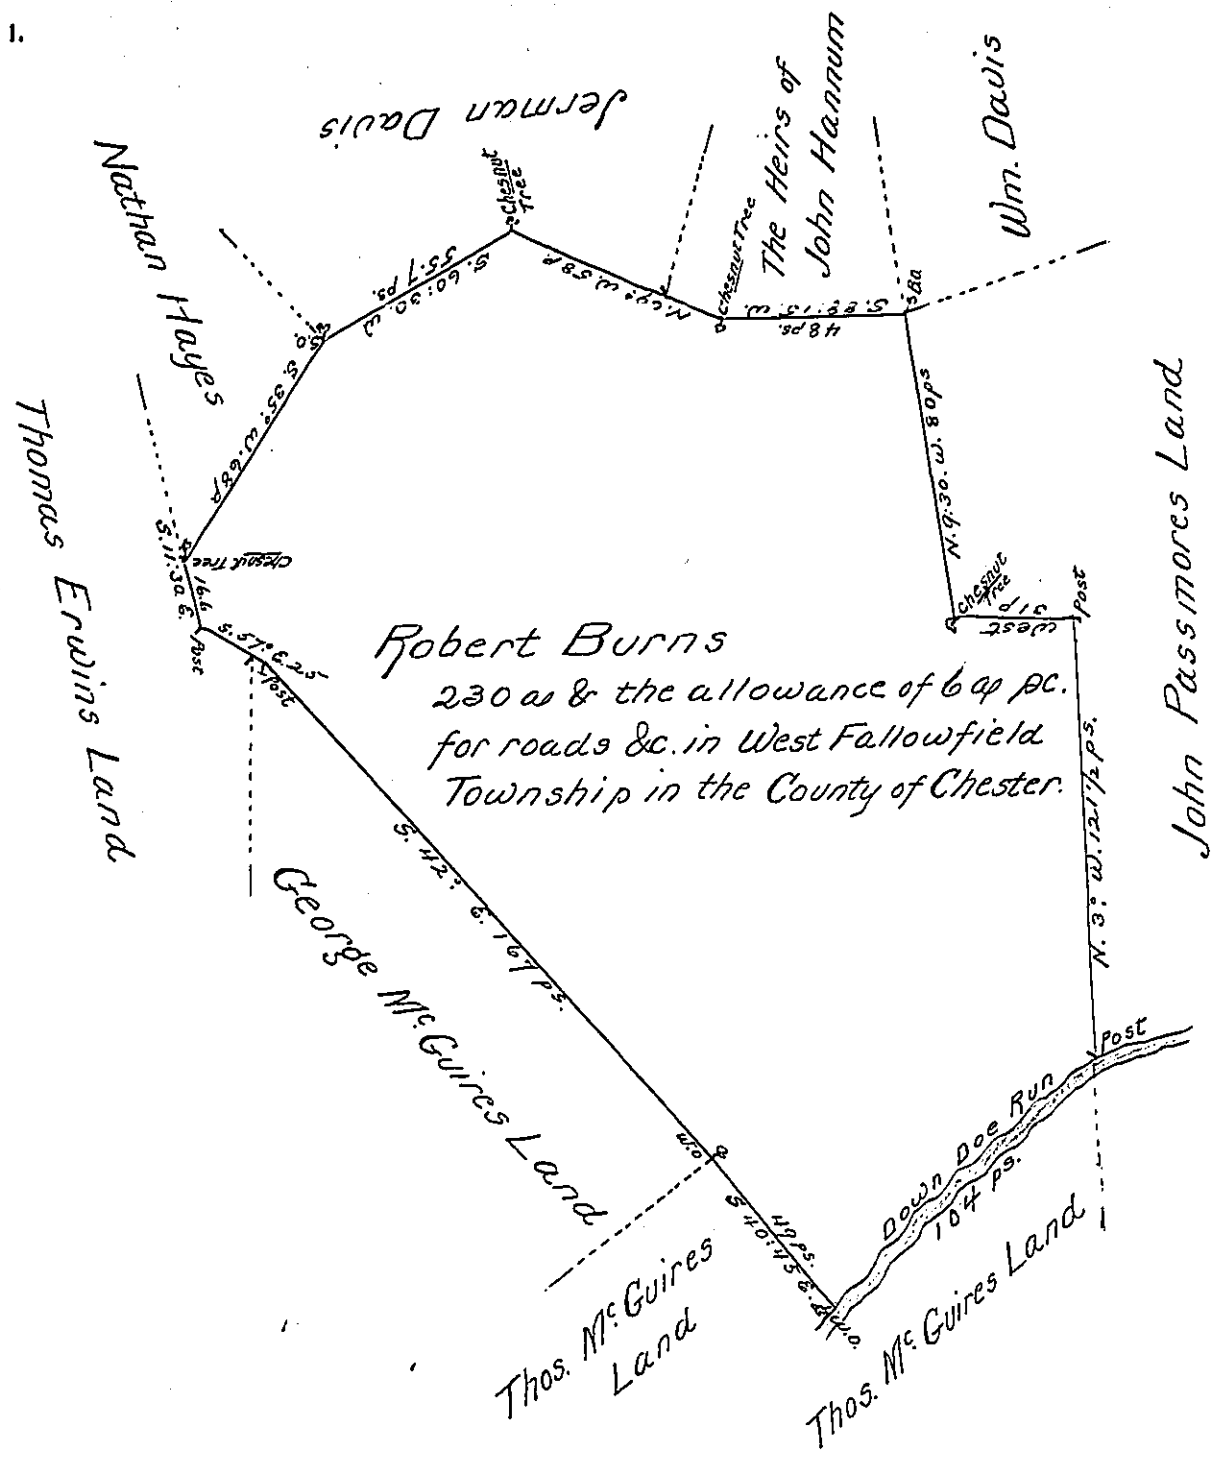 1.
Jerman Davis
The Heirs of
John Hannum
Wm. Davis
Nathan Hayes
Thomas Erwins Land
John Passmores Land
Chesnut
Tree
S. 60:30. W
55.7 ps.
Chesnut Tree
S. 88:15. W.
48 ps.
Ba
S. 35° W. 68 p
Chesnut Tree
S. 11:30 E.
Post
Post
N. 9:30. W. 80ps
Chesnut
Tree
West
31 p
Post
Robert Burns
230 as & the allowance of 6 ap pc.
for roads &c. in West Fallowfield
Township in the County of Chester.
N. 3° W. 121½ ps.
S. 42° E. 167 ps.
George Mc. Guires Land
Post
W.O
Down Doe Run
104 ps.
Thos. Mc. Guires
Land
Thos. Mc. Guires Land